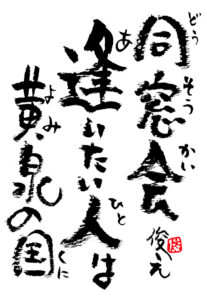 同窓会
逢いたい人は
黄泉の国
どうそうかい
あ
ひと
よみ
くに
俊